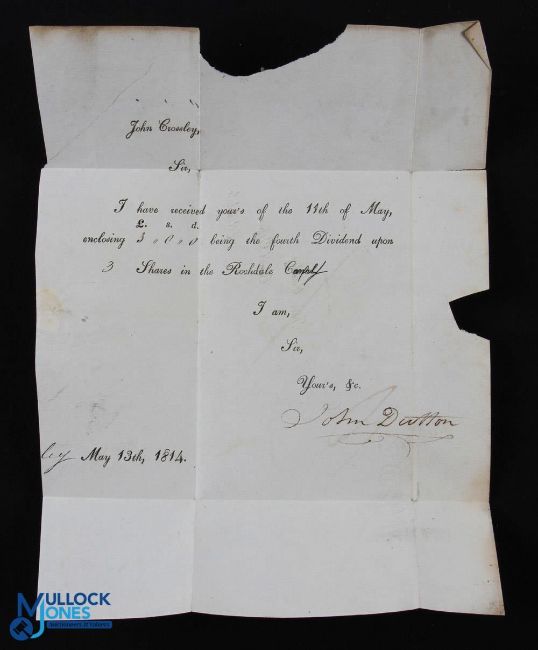 John Crossley,
Sir,
I have received your's of the 11th of May,
£. s. d.
enclosing 3 " 0 " 0 being the fourth Dividend upon
3 Shares in the Rochdale
I am,
Sir,
Your's, &c.
John Dutton
ley May 13th, 1814.
MULLOCK
JONES
Auctioneers & Valuers